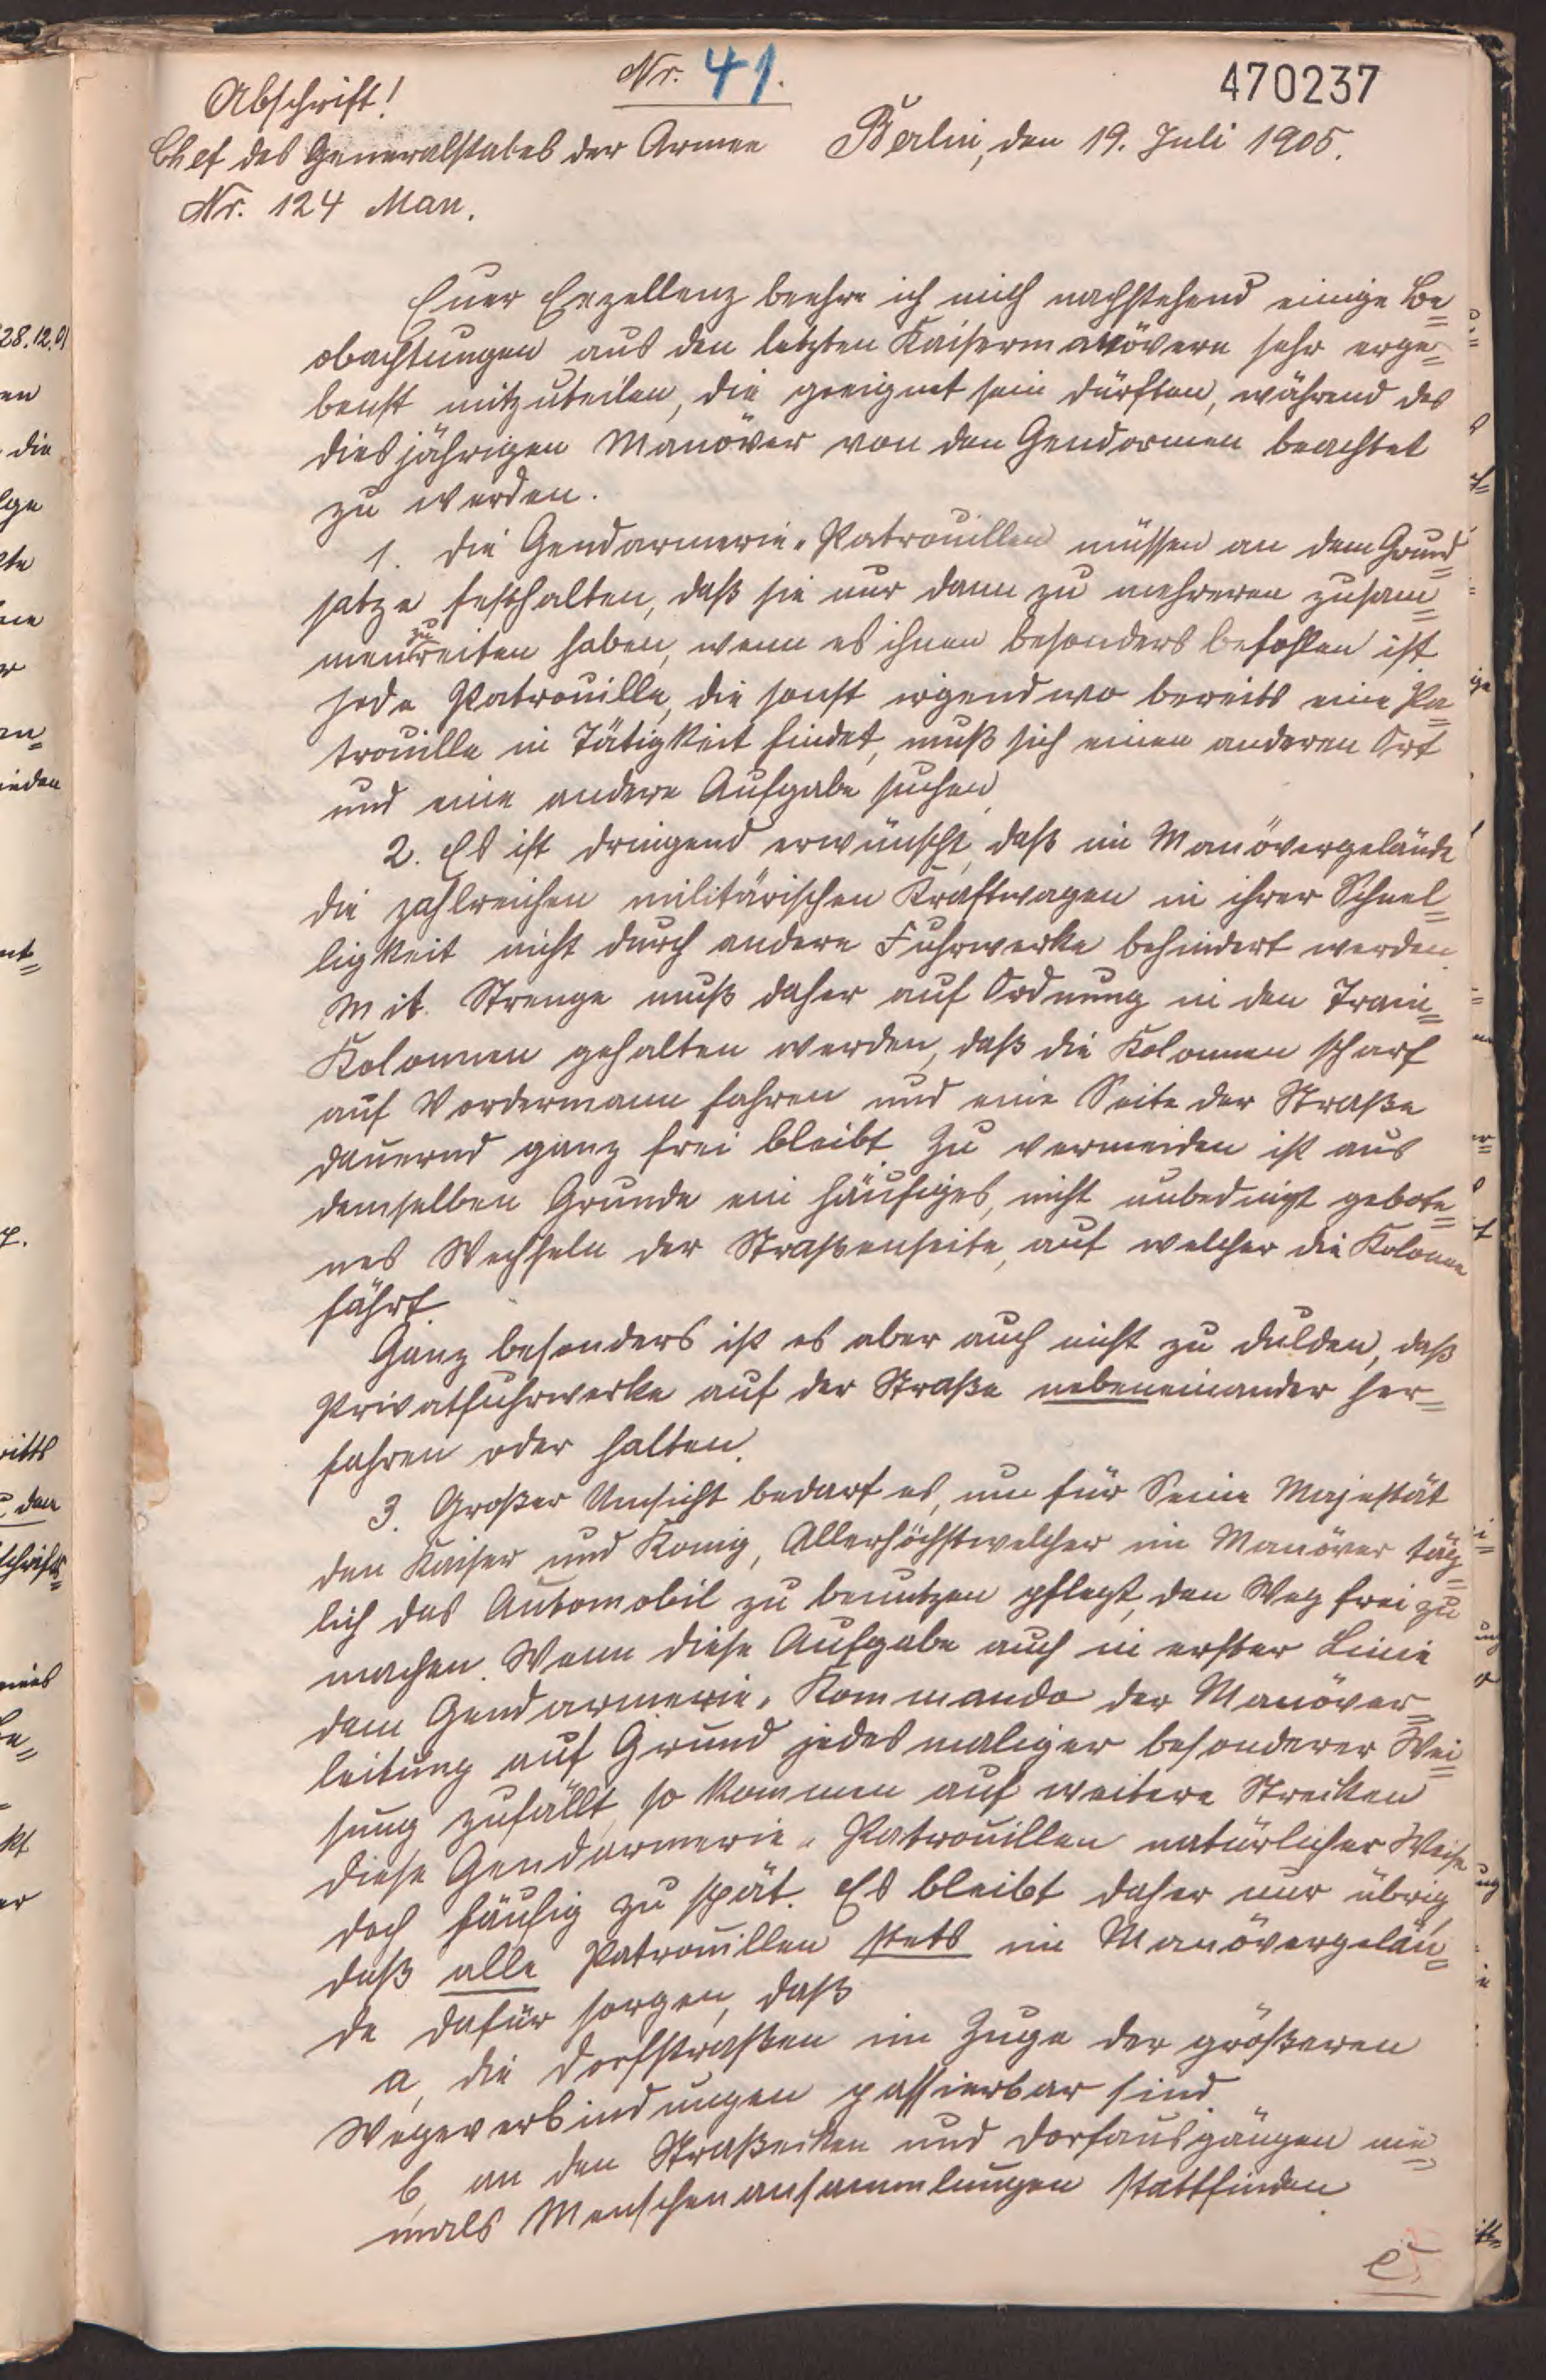 Nr. 41.
470237
Abschrift!
Chef des Generalstabes der Armee Berlin, den 19. Juli 1905.
Nr. 124 Man.
Euer Exzellenz beehre ich mich nachstehend einige Be=
obachtungen aus den letzten Kaisermanövern sehr erge=
benst mitzuteilen, die geeignet sein dürften, während des
diesjährigen Manöver von den Gendarmen beachtet
zu werden.
1. Die Gendarmerie-Patrouillen müssen an dem Grund=
satze festhalten, daß sie nur dann zu mehreren zusam=
menzureiten haben, wenn es ihnen besonders befohlen ist
jede Patrouille, die sonst irgendwo bereits eine Pa=
trouille in Tätigkeit findet, muß sich einen anderen Ort
und eine andere Aufgabe suchen
2. Es ist dringend erwünscht, daß im Manövergelände
die zahlreichen militärischen Kraftwagen in ihrer Schnel=
ligkeit nicht durch andere Fuhrwerke behindert werden.
Mit Strenge muß daher auf Ordnung in den Train=
Kolonnen gehalten werden, daß die Kolonnen scharf
auf Vordermann fahren und eine Seite der Straße
dauernd ganz frei bleibt. Zu vermeiden ist aus
demselben Grunde ein häufiges, nicht unbedingt gebote=
nes Wechseln der Straßenseite, auf welcher die Kolonne
fährt.
Ganz besonders ist es aber auch nicht zu dulden, daß
Privatfuhrwerke auf der Straße nebeneinander her=
fahren oder halten.
3. Großer Umsicht bedarf es, um für Seine Majestät
den Kaiser und König, Allerhöchstwelcher im Manöver täg=
lich das Automobil zu benutzen pflegt, den Weg frei zu
machen. Wenn diese Aufgabe auch in erster Linie
dem Gendarmerie-Kommando der Manöver=
leitung auf Grund jedesmaliger besonderer Wei=
sung zufällt, so kommen auf weitere Strecken
diese Gendarmerie-Patrouillen natürlicher Weise
doch häufig zu spät. Es bleibt daher nur übrig,
daß alle Patrouillen stets im Manövergelän=
de dafür sorgen, daß
a, die Dorfstraßen im Zuge der größeren
Wegeverbindungen passierbar sind.
b, an den Straßecken und Dorfausgängen nie=
mals Menschenansammlungen stattfinden